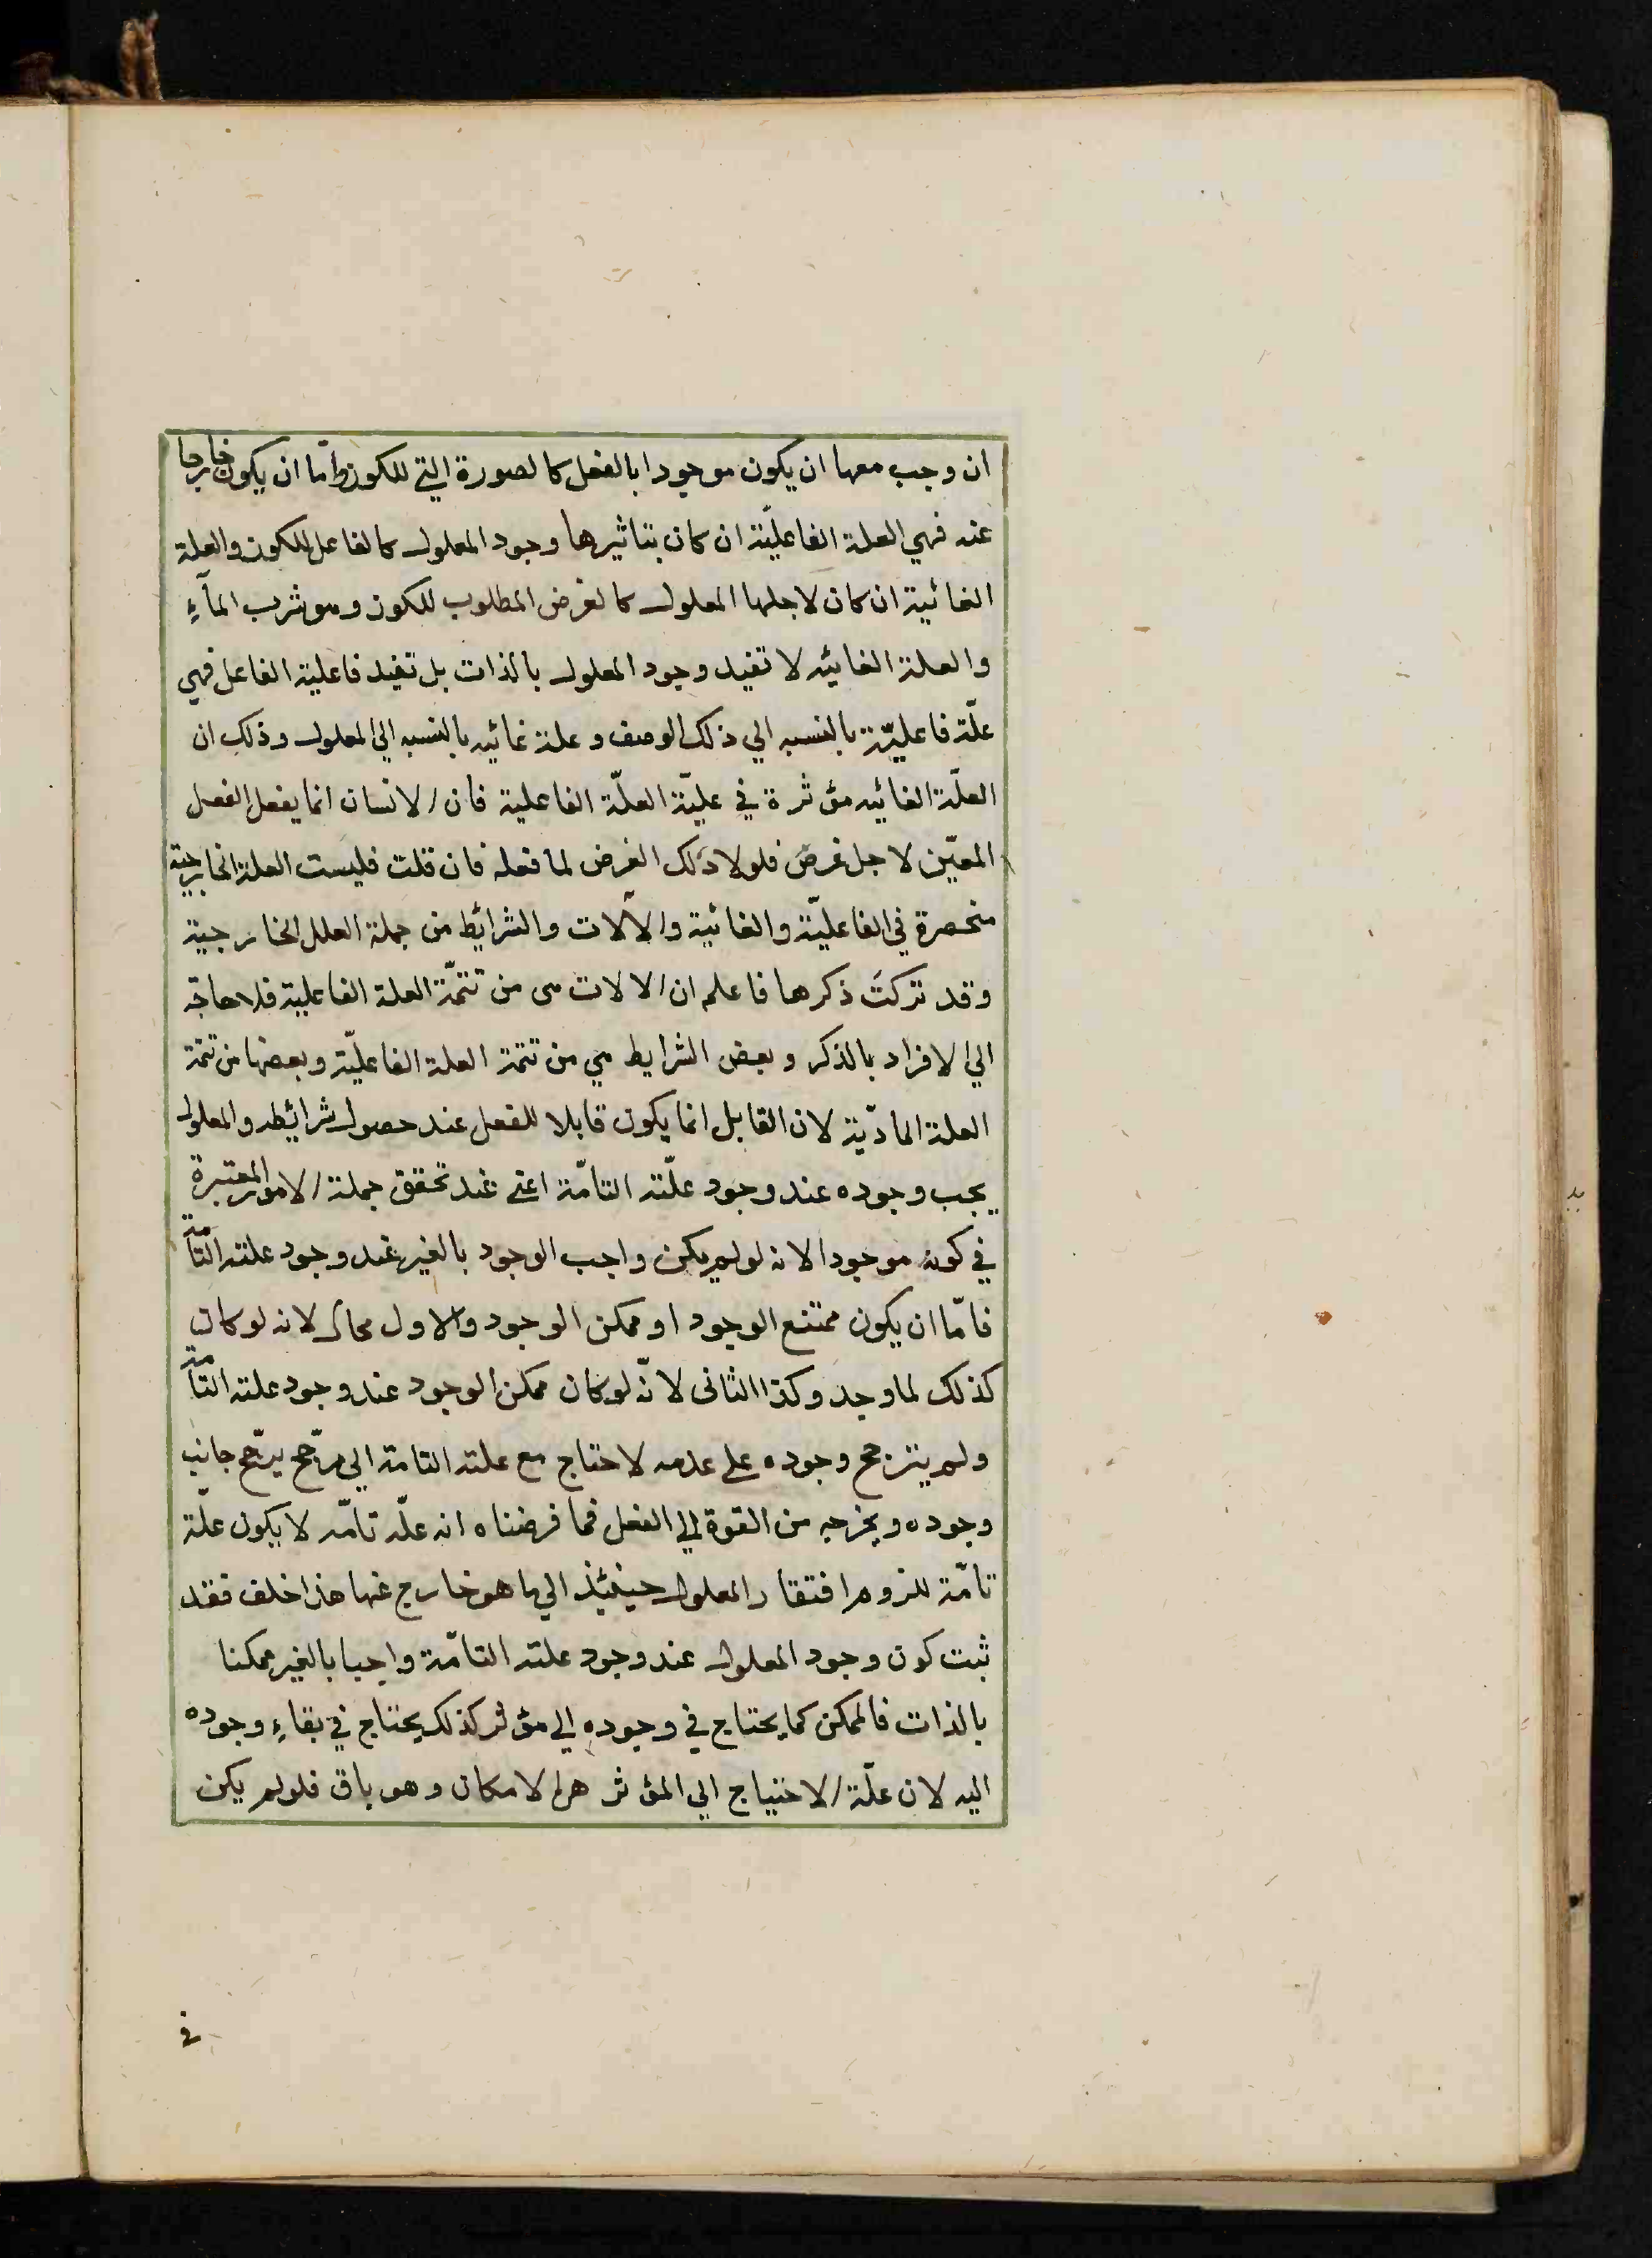 ان وجب معها ان يكون موجودا بالفعل كالصورة التي للكوز واما ان يكون خارجا
عنه فهي العلة الفاعليّة ان كان بتاثيرها وجود المعلول كالفاعل للكوز والعلة
الغائية ان كان لاجلها المعلول كالغرض المطلوب للكوز وهو شرب المآءِ
والعلة الغائيه لا تفيد وجود المعلول بالذات بل تفيد فاعلية الفاعل فهي
علّة فاعليّة بالنسبه الي ذلك الوصف وعلة غائيه بالنسبه الي المعلول وذلك ان
العلّة الغائيه مؤثرة في عليّة العلّة الفاعلية فان الانسان انما يفعل الفعل
المعيّن لاجل غرض فلولا ذلك الغرض لما فعله فان قلت فليست العلة الخارجية
منحصرة في الفاعليّة والغائية والآلات والشرائط من جملة العلل الخارجية
وقد تركتَ ذكرها فاعلم ان الالات هى من تتمّة العلة الفاعلية فلا حاجة
الي الافراد بالذكر وبعض الشرايط هي من تتمة العلة الفاعليّة وبعضها من تتمة
العلة المادّية لان القابل انما يكون قابلا للفعل عند حصول شرائيطه والمعلول
يجب وجوده عند وجود علّته التامّة اعني عند تحقق جملة الامور المعتبرة
في كونه موجودا لانه لو لم يكن واجب الوجود بالغير عند وجود علته التّامة
فامّا ان يكون ممتنع الوجود او ممكن الوجود والاول محال لانه لو كان
كذلك لما وجد وكذا الثانى لانّه لو كان ممكن الوجود عند وجود علته التّامة
ولم يترجح وجوده علي عدمه لاحتاج مع علته التامة الي مرجّح يرجّح جانب
وجوده ويخرجه من القوة الي الفعل فما فرضناه انه علّة تامّه لا يكون علّة
تامّة للزوم افتقار المعلول حينئذ الي ما هو خارج عنها هذا خلف فقد
ثبت كون وجود المعلول عند وجود علته التامّة واجبا بالغير ممكنا
بالذات فالممكن كما يحتاج في وجوده الي مؤثر كذلك يحتاج في بقاءِ وجوده
اليه لان علّة الاحتياج الي المؤثر هو الامكان وهو باق فلو لم يكن
في